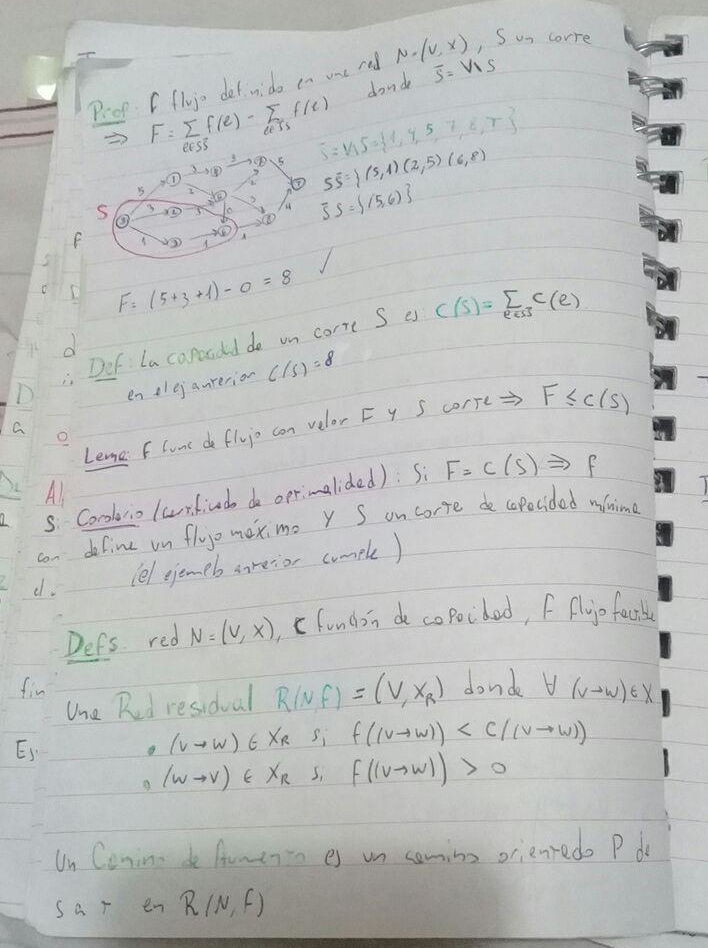 Prop: f flujo definido en una red N=(V,X), S un corte
⇒ F = Σ f(e) - Σ f(e) donde S̄ = V\S
e∈SS̄ e∈S̄S
S̄=V\S={1,4,5,7,8,T}
SS̄={(S,1)(2,5)(6,8)
S̄S={(5,6)}
S
F= (5+3+1)-0 = 8 ✓
Def: La capacidad de un corte S es C(S)= Σ C(e)
e∈SS̄
en el ej anterior C(S)=8
Lema: f func de flujo con valor F y S corte ⇒ F ≤ C(S)
Corolario (certificado de optimalidad): Si F = C(S) ⇒ f
define un flujo máximo y S un corte de capacidad mínima
(el ejemplo anterior cumple)
Defs. red N=(V,X), C función de capacidad, f flujo factible
Una Red residual R(N,f) = (V,X_R) donde ∀ (v→w) ∈ X
• (v→w) ∈ X_R si f((v→w)) < C((v→w))
• (w→v) ∈ X_R si f((v→w)) > 0
Un Camino de Aumento es un camino orientado P de
s a t en R(N,f)